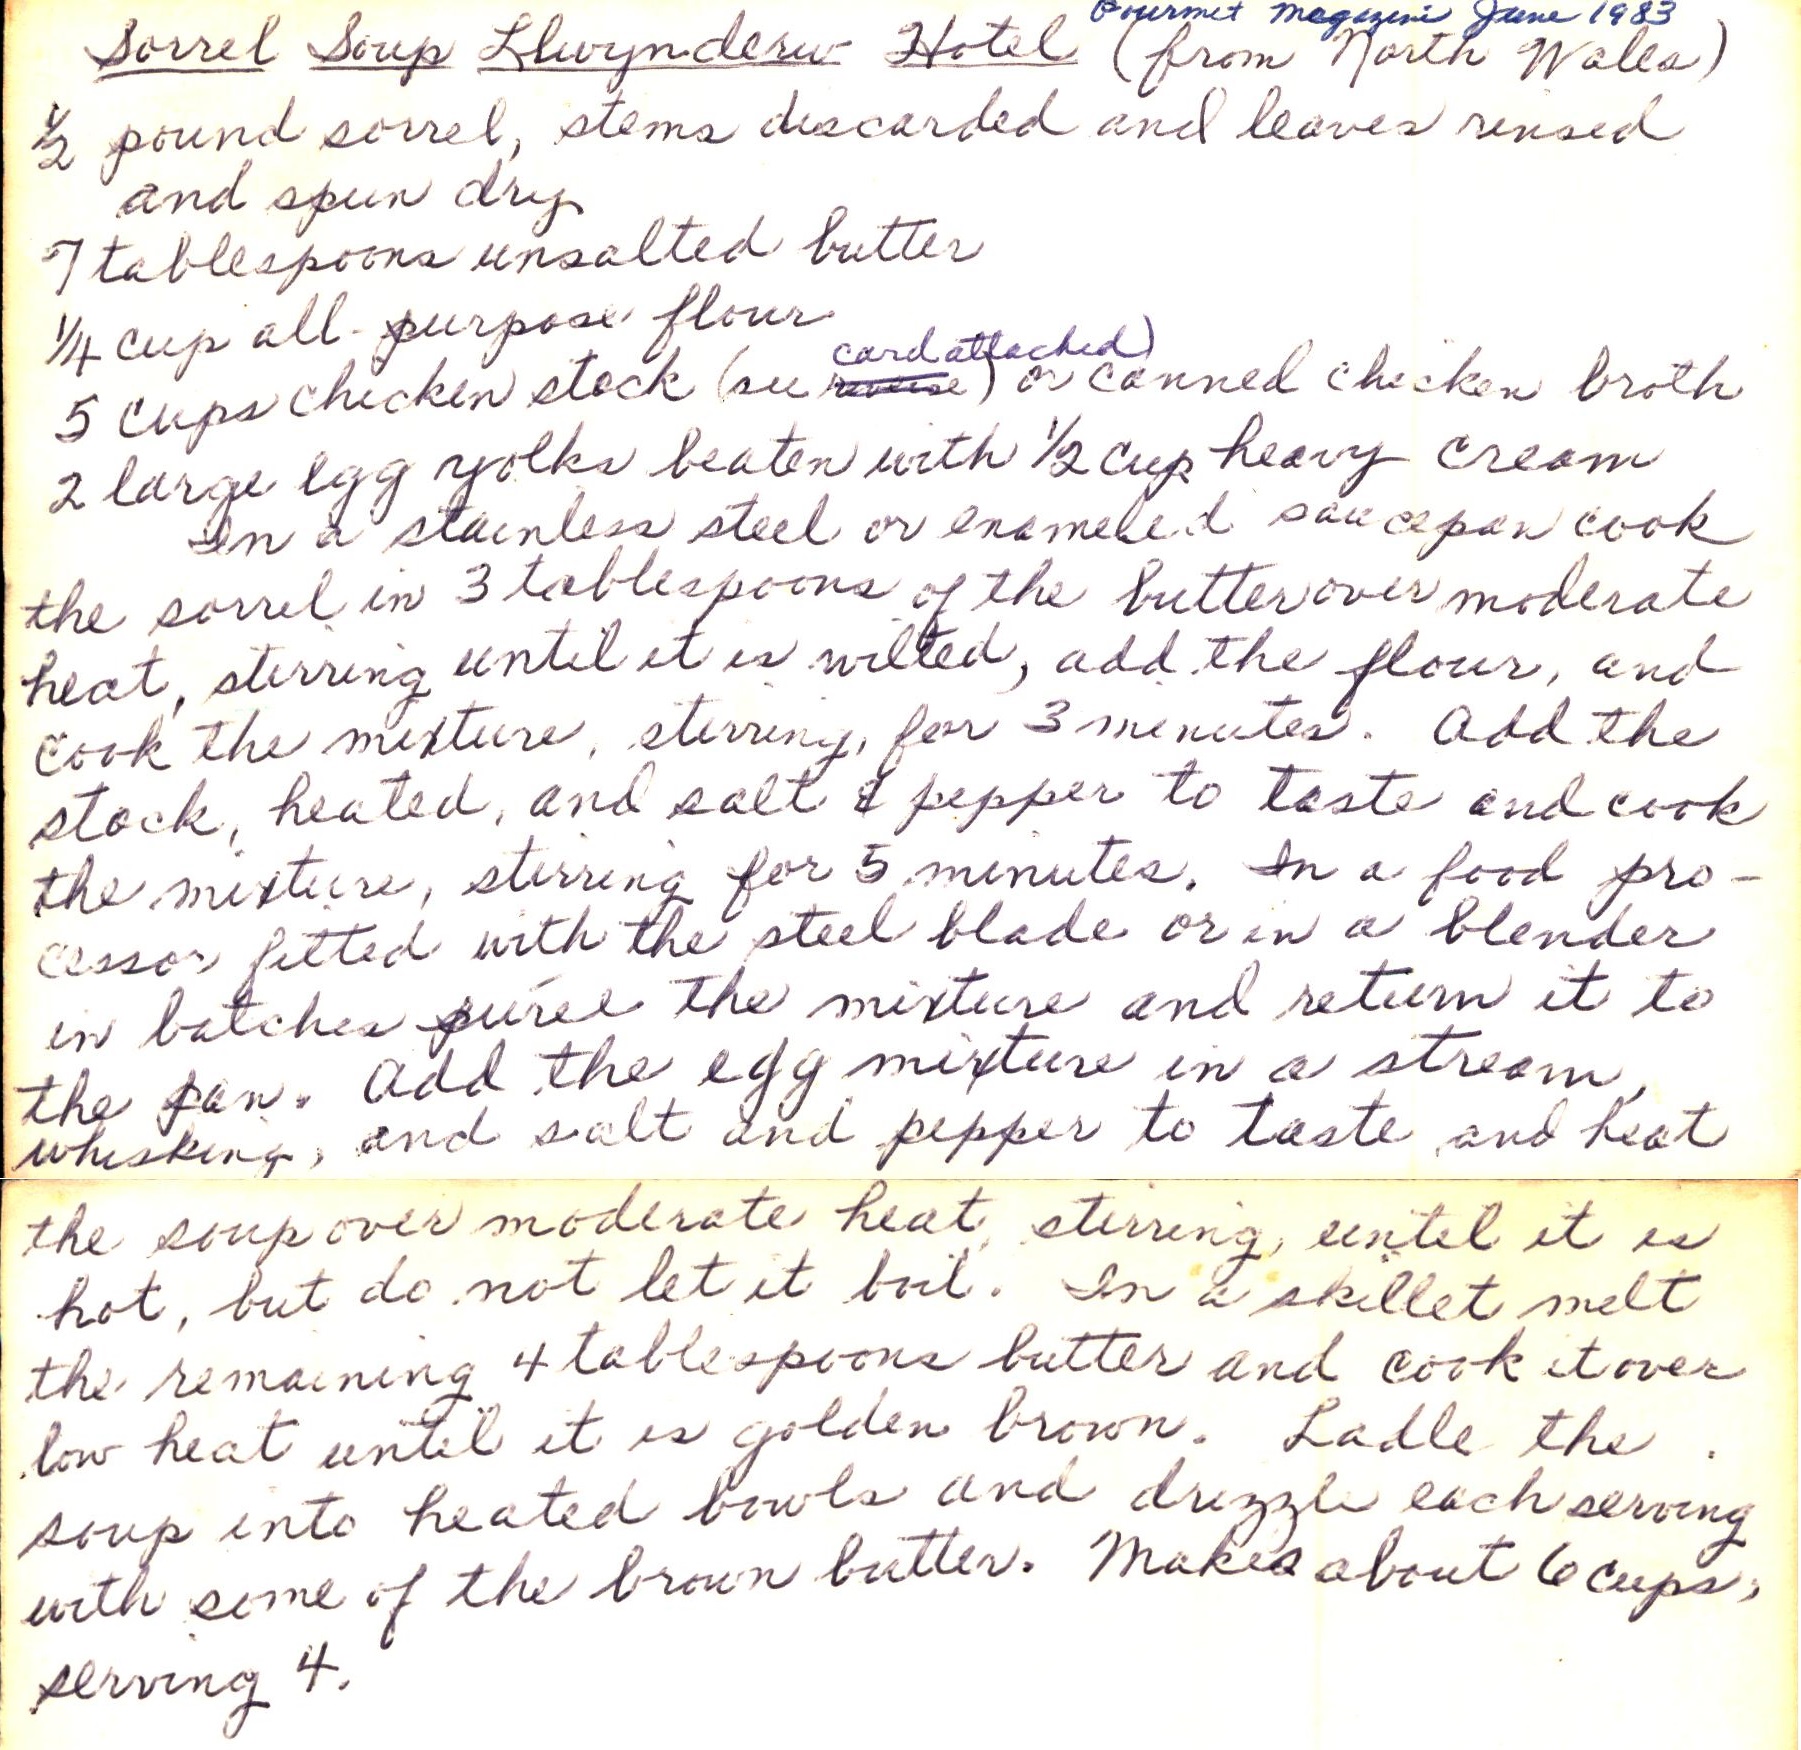 Gourmet Magazine June 1983
Sorrel Soup Llwynderw Hotel (from North Wales)
1/2 pound sorrel, stems discarded and leaves rinsed
and spun dry
7 tablespoons unsalted butter
1/4 cup all-purpose flour
card attached)
5 cups chicken stock (see reverse) or canned chicken broth
2 large egg yolks beaten with 1/2 cup heavy cream
In a stainless steel or enameled saucepan cook
the sorrel in 3 tablespoons of the butter over moderate
heat, stirring until it is wilted, add the flour, and
cook the mixture, stirring, for 3 minutes. Add the
stock, heated, and salt & pepper to taste and cook
the mixture, stirring for 5 minutes. In a food pro-
cessor fitted with the steel blade or in a blender
in batches purée the mixture and return it to
the pan. Add the egg mixture in a stream,
whisking, and salt and pepper to taste and heat
the soup over moderate heat, stirring, until it is
hot, but do not let it boil. In a skillet melt
the remaining 4 tablespoons butter and cook it over
low heat until it is golden brown. Ladle the
soup into heated bowls and drizzle each serving
with some of the brown butter. Makes about 6 cups,
serving 4.